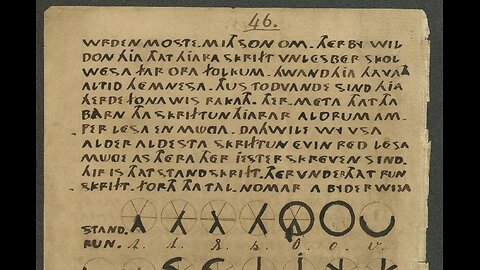 46.
WRDEN MOSTE. MITH SON OM. THERBY WIL
DON HIA THAT HIARA SKRIFT VNLESBER SKOL
WESA THAR ORA FOLKUM. HWAND HIA HAVATH
ALTID HEMNESA. THUS TODVANDE SIND HIA
HERDE FONA WIS RAKATH. THER. META THAT THA
BERN THA SKRIFTUN HIARAR ALDRUM AM.
PER LESA EN MUGA. DAHWILE WY VSA
ALDER ALDESTA SKRIFTUN EVIN RED LESA
MUGE AS THERA THER IESTER SKREVEN SIND.
HIR IS THAT STAND SKRIFT. THERUNDER THAT RUN
SKRIFT. FORTH THA TAL. NOMAR A BIDER WISA
STAND.
RUN.